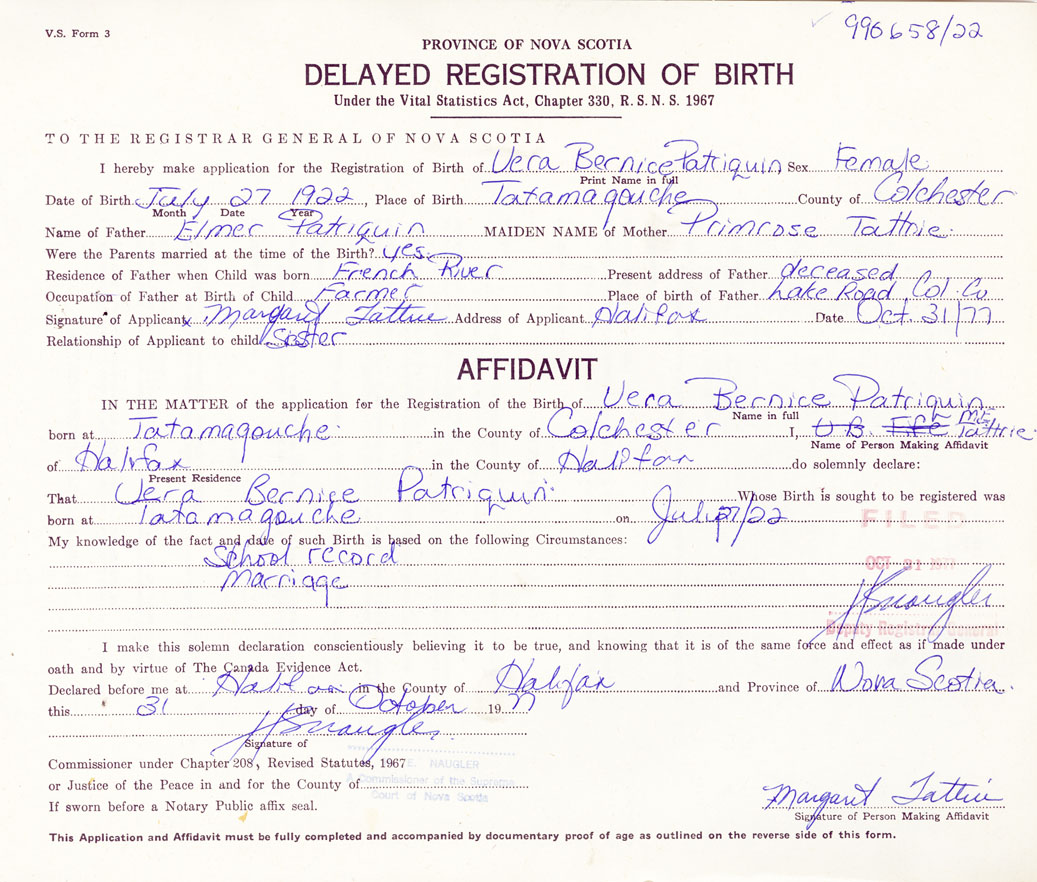 V.S. Form 3
990658/22
PROVINCE OF NOVA SCOTIA
DELAYED REGISTRATION OF BIRTH
Under the Vital Statistics Act, Chapter 330, R.S.N.S. 1967
TO THE REGISTRAR GENERAL OF NOVA SCOTIA
I hereby make application for the Registration of Birth of Vera Bernice Patriquin Sex Female
Print Name in full
Date of Birth July 27 1922, Place of Birth Tatamagouche County of Colchester
Month Date Year
Name of Father Elmer Patriquin MAIDEN NAME of Mother Primrose Tattrie
Were the Parents married at the time of the Birth? yes
Residence of Father when Child was born French River Present address of Father deceased
Occupation of Father at Birth of Child Farmer Place of birth of Father Lake Road, Col. Co
Signature of Applicant x Margaret Tattrie Address of Applicant Halifax Date Oct. 31/77
Relationship of Applicant to child Sister
AFFIDAVIT
IN THE MATTER of the application for the Registration of the Birth of Vera Bernice Patriquin
Name in full
born at Tatamagouche in the County of Colchester I, Tattrie
Name of Person Making Affidavit
of Halifax in the County of Halifax do solemnly declare:
Present Residence
That Vera Bernice Patriquin Whose Birth is sought to be registered was
born at Tatamagouche on July 27/22
FILED
My knowledge of the fact and date of such Birth is based on the following Circumstances:
School record
OCT 31 1977
Marriage
Naugler
Deputy Registrar General
I make this solemn declaration conscientiously believing it to be true, and knowing that it is of the same force and effect as if made under
oath and by virtue of The Canada Evidence Act.
Declared before me at Halifax in the County of Halifax and Province of Nova Scotia
this 31 day of October 1977
Naugler
Signature of
Commissioner under Chapter 208, Revised Statutes, 1967
E. NAUGLER
or Justice of the Peace in and for the County of
A Commissioner of the Supreme
Court of Nova Scotia
If sworn before a Notary Public affix seal.
Margaret Tattrie
Signature of Person Making Affidavit
This Application and Affidavit must be fully completed and accompanied by documentary proof of age as outlined on the reverse side of this form.